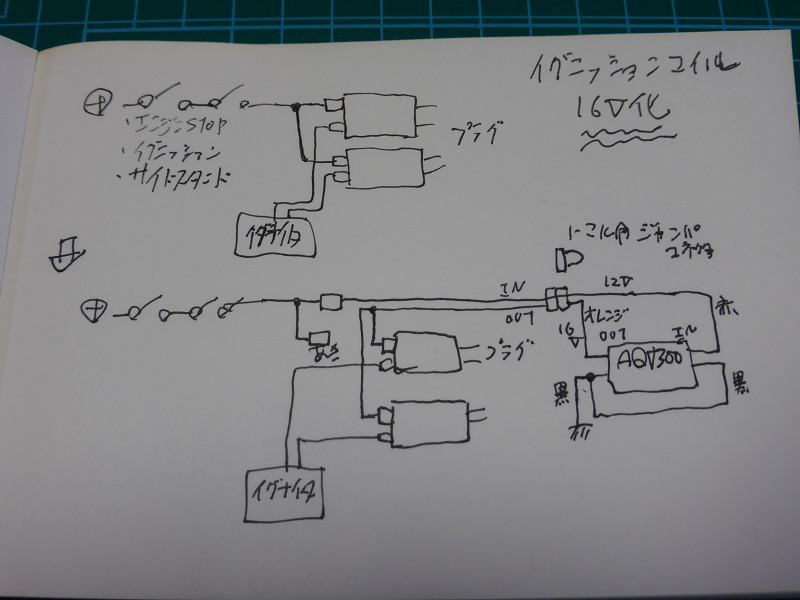 イグニッションコイル
16V化
⊕
・エンジンSTOP
・イグニッション
・サイドスタンド
プラグ
イグナイタ
トラブル用ジャンパ
コネクタ
⊕
IN
12V
赤
OUT
オレンジ
16V
OUT
IN
AQV300
あき
プラグ
黒
黒
イグナイタ